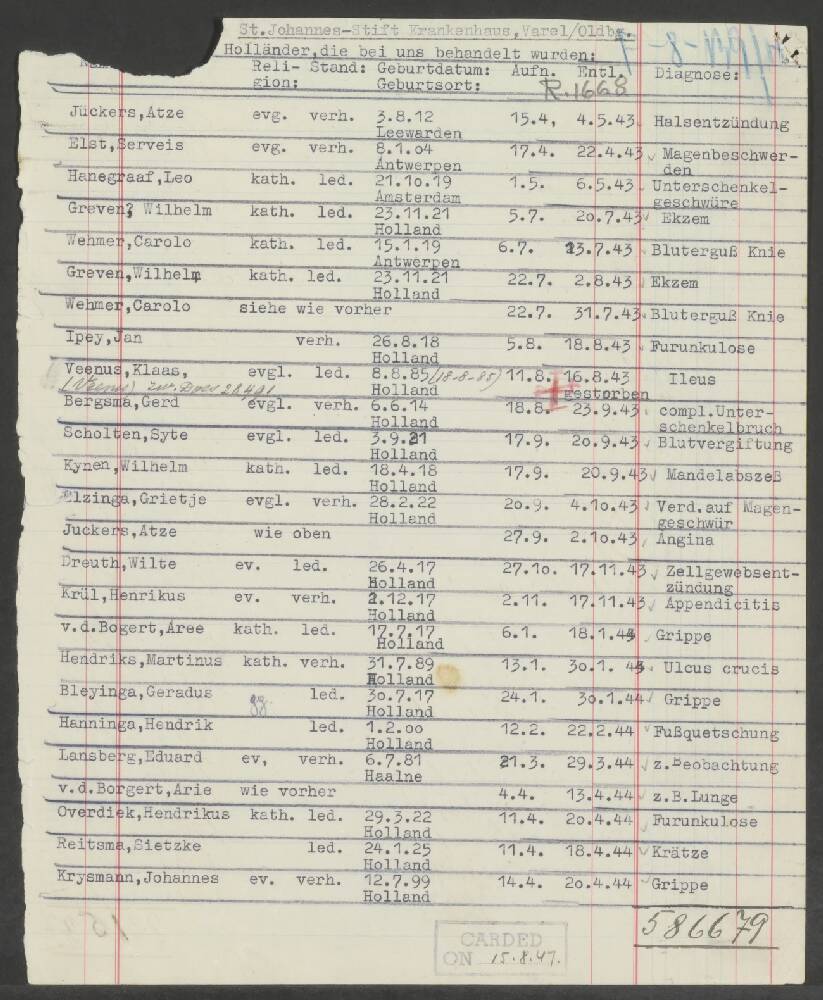 St.Johannes-Stift Krankenhaus,Varel/Oldbg.
Holländer,die bei uns behandelt wurden:
Reli- Stand: Geburtdatum: Aufn. Entl. Diagnose:
gion: Geburtsort: R.1668
Jückers,Atze evg. verh. 3.8.12 15.4, 4.5.43 Halsentzündung
Leewarden
Elst,Serveis evg. verh. 8.1.04 17.4. 22.4.43 Magenbeschwer-
Antwerpen den
Hanegraaf,Leo kath. led. 21.10.19 1.5. 6.5.43 Unterschenkel-
Amsterdam geschwüre
Greven, Wilhelm kath. led. 23.11.21 5.7. 20.7.43 Ekzem
Holland
Wehmer,Carolo kath. led. 15.1.19 6.7. 13.7.43 Bluterguß Knie
Antwerpen
Greven,Wilhelm kath. led. 23.11.21 22.7. 2.8.43 Ekzem
Holland
Wehmer,Carolo siehe wie vorher 22.7. 31.7.43 Bluterguß Knie
Ipey,Jan verh. 26.8.18 5.8. 18.8.43 Furunkulose
Holland
Veenus,Klaas, evgl. led. 8.8.85 (18-8-85) 11.8. 16.8.43 Ileus
Holland gestorben
Bergsma,Gerd evgl. verh. 6.6.14 18.8. 23.9.43 compl.Unter-
Holland schenkelbruch
Scholten,Syte evgl. led. 3.9.21 17.9. 20.9.43 Blutvergiftung
Holland
Kynen,Wilhelm kath. led. 18.4.18 17.9. 20.9.43 Mandelabszeß
Holland
Elzinga,Grietje evgl. verh. 28.2.22 20.9. 4.10.43 Verd.auf Magen-
Holland geschwür
Juckers,Atze wie oben 27.9. 2.10.43 Angina
Dreuth,Wilte ev. led. 26.4.17 27.10. 17.11.43 Zellgewebsent-
Holland zündung
Krül,Henrikus ev. verh. 2.12.17 2.11. 17.11.43 Appendicitis
Holland
v.d.Bogert,Aree kath. led. 17.7.17 6.1. 18.1.44 Grippe
Holland
Hendriks,Martinus kath. verh. 31.7.89 13.1. 30.1. 44. Ulcus crucis
Holland
Bleyinga,Geradus led. 30.7.17 24.1. 30.1.44 Grippe
Holland
Hanninga,Hendrik led. 1.2.00 12.2. 22.2.44 Fußquetschung
Holland
Lansberg,Eduard ev, verh. 6.7.81 21.3. 29.3.44 z.Beobachtung
Haalne
v.d.Borgert,Arie wie vorher 4.4. 13.4.44 z.B.Lunge
Overdiek,Hendrikus kath. led. 29.3.22 11.4. 20.4.44 Furunkulose
Holland
Reitsma,Sietzke led. 24.1.25 11.4. 18.4.44 Krätze
Holland
Krysmann,Johannes ev. verh. 12.7.99 14.4. 20.4.44 Grippe
Holland
586679
CARDED
ON 15.8.47.